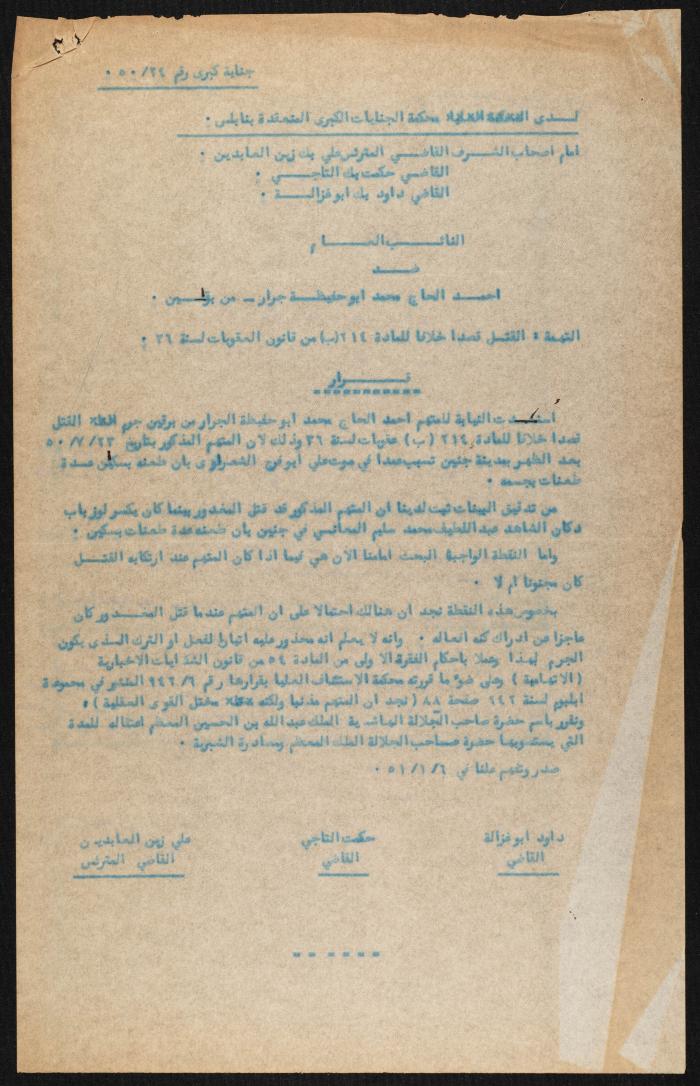 جناية كبرى رقم ٥٠/٢٤ ٠
لدى محكمة الجنايات الكبرى المنعقدة بنابلس ٠
امام اصحاب الشرف القاضي المترئس علي بك زين العابدين ٠
القاضي حكمت بك التاجي ٠
القاضي داود بك ابو غزالة ٠
النائب العام
ضد
احمد الحاج محمد ابو حليظة جرار - من برقين ٠
التهمة : القتل قصدا خلافا للمادة ٢١٤(ب) من قانون العقوبات لسنة ٣٦ ٠
قرار
اسندت النيابة للمتهم احمد الحاج محمد ابو حليظة الجرار من برقين جرم القتل
قصدا خلافا للمادة ٢١٤ ( ب ) عقوبات لسنة ٣٦ وذلك لان المتهم المذكور بتاريخ ٥٠/٧/٢٣
بعد الظهر بمدينة جنين تسبب عمدا في موت علي ابو فرج الشعراوى بان طعنه بسكين عدة
طعنات بجسمه ٠
من تدقيق البينات ثبت لدينا ان المتهم المذكور قد قتل المغدور بينما كان يكسر لوز بباب
دكان الشاهد عبد اللطيف محمد سليم في جنين بان طعنه عدة طعنات بسكين ٠
واما النقطة الواجبة البحث امامنا الان هي فيما اذا كان المتهم عند ارتكابه القتل
كان مجنونا ام لا ٠
بخصوص هذه النقطة نجد ان هنالك احتمالا على ان المتهم عندما قتل المغدور كان
عاجزا عن ادراك كنه افعاله ٠ وانه لا يعلم انه محذور عليه اتيان الفعل او الترك الذى يكون
الجرم لهذا وعملا باحكام الفقرة الاولى من المادة ٥٤ من قانون الشكايات الاخبارية
( الاتهامية ) وعلى ضوء ما قررته محكمة الاستئناف العليا بقرارها رقم ٩٤٢/٦ المنشر في مجموعة
ابليوم لسنة ٩٤٢ صفحة ٨٨ ( نجد ان المتهم مذنبا ولكنه مختل القوى العقلية ) ٠
ونقرر بأسم حضرة صاحب الجلالة الهاشمية الملك عبد الله بن الحسين المعظم اعتقاله للمدة
التي يستصوبها حضرة صاحب الجلالة الملك المعظم ومصادرة الشبرية ٠
صدر وتفهم علنا في ٥١/١/٦ ٠
داود ابو غزالة حكمت التاجي علي زين العابدين
القاضي القاضي القاضي المترئس